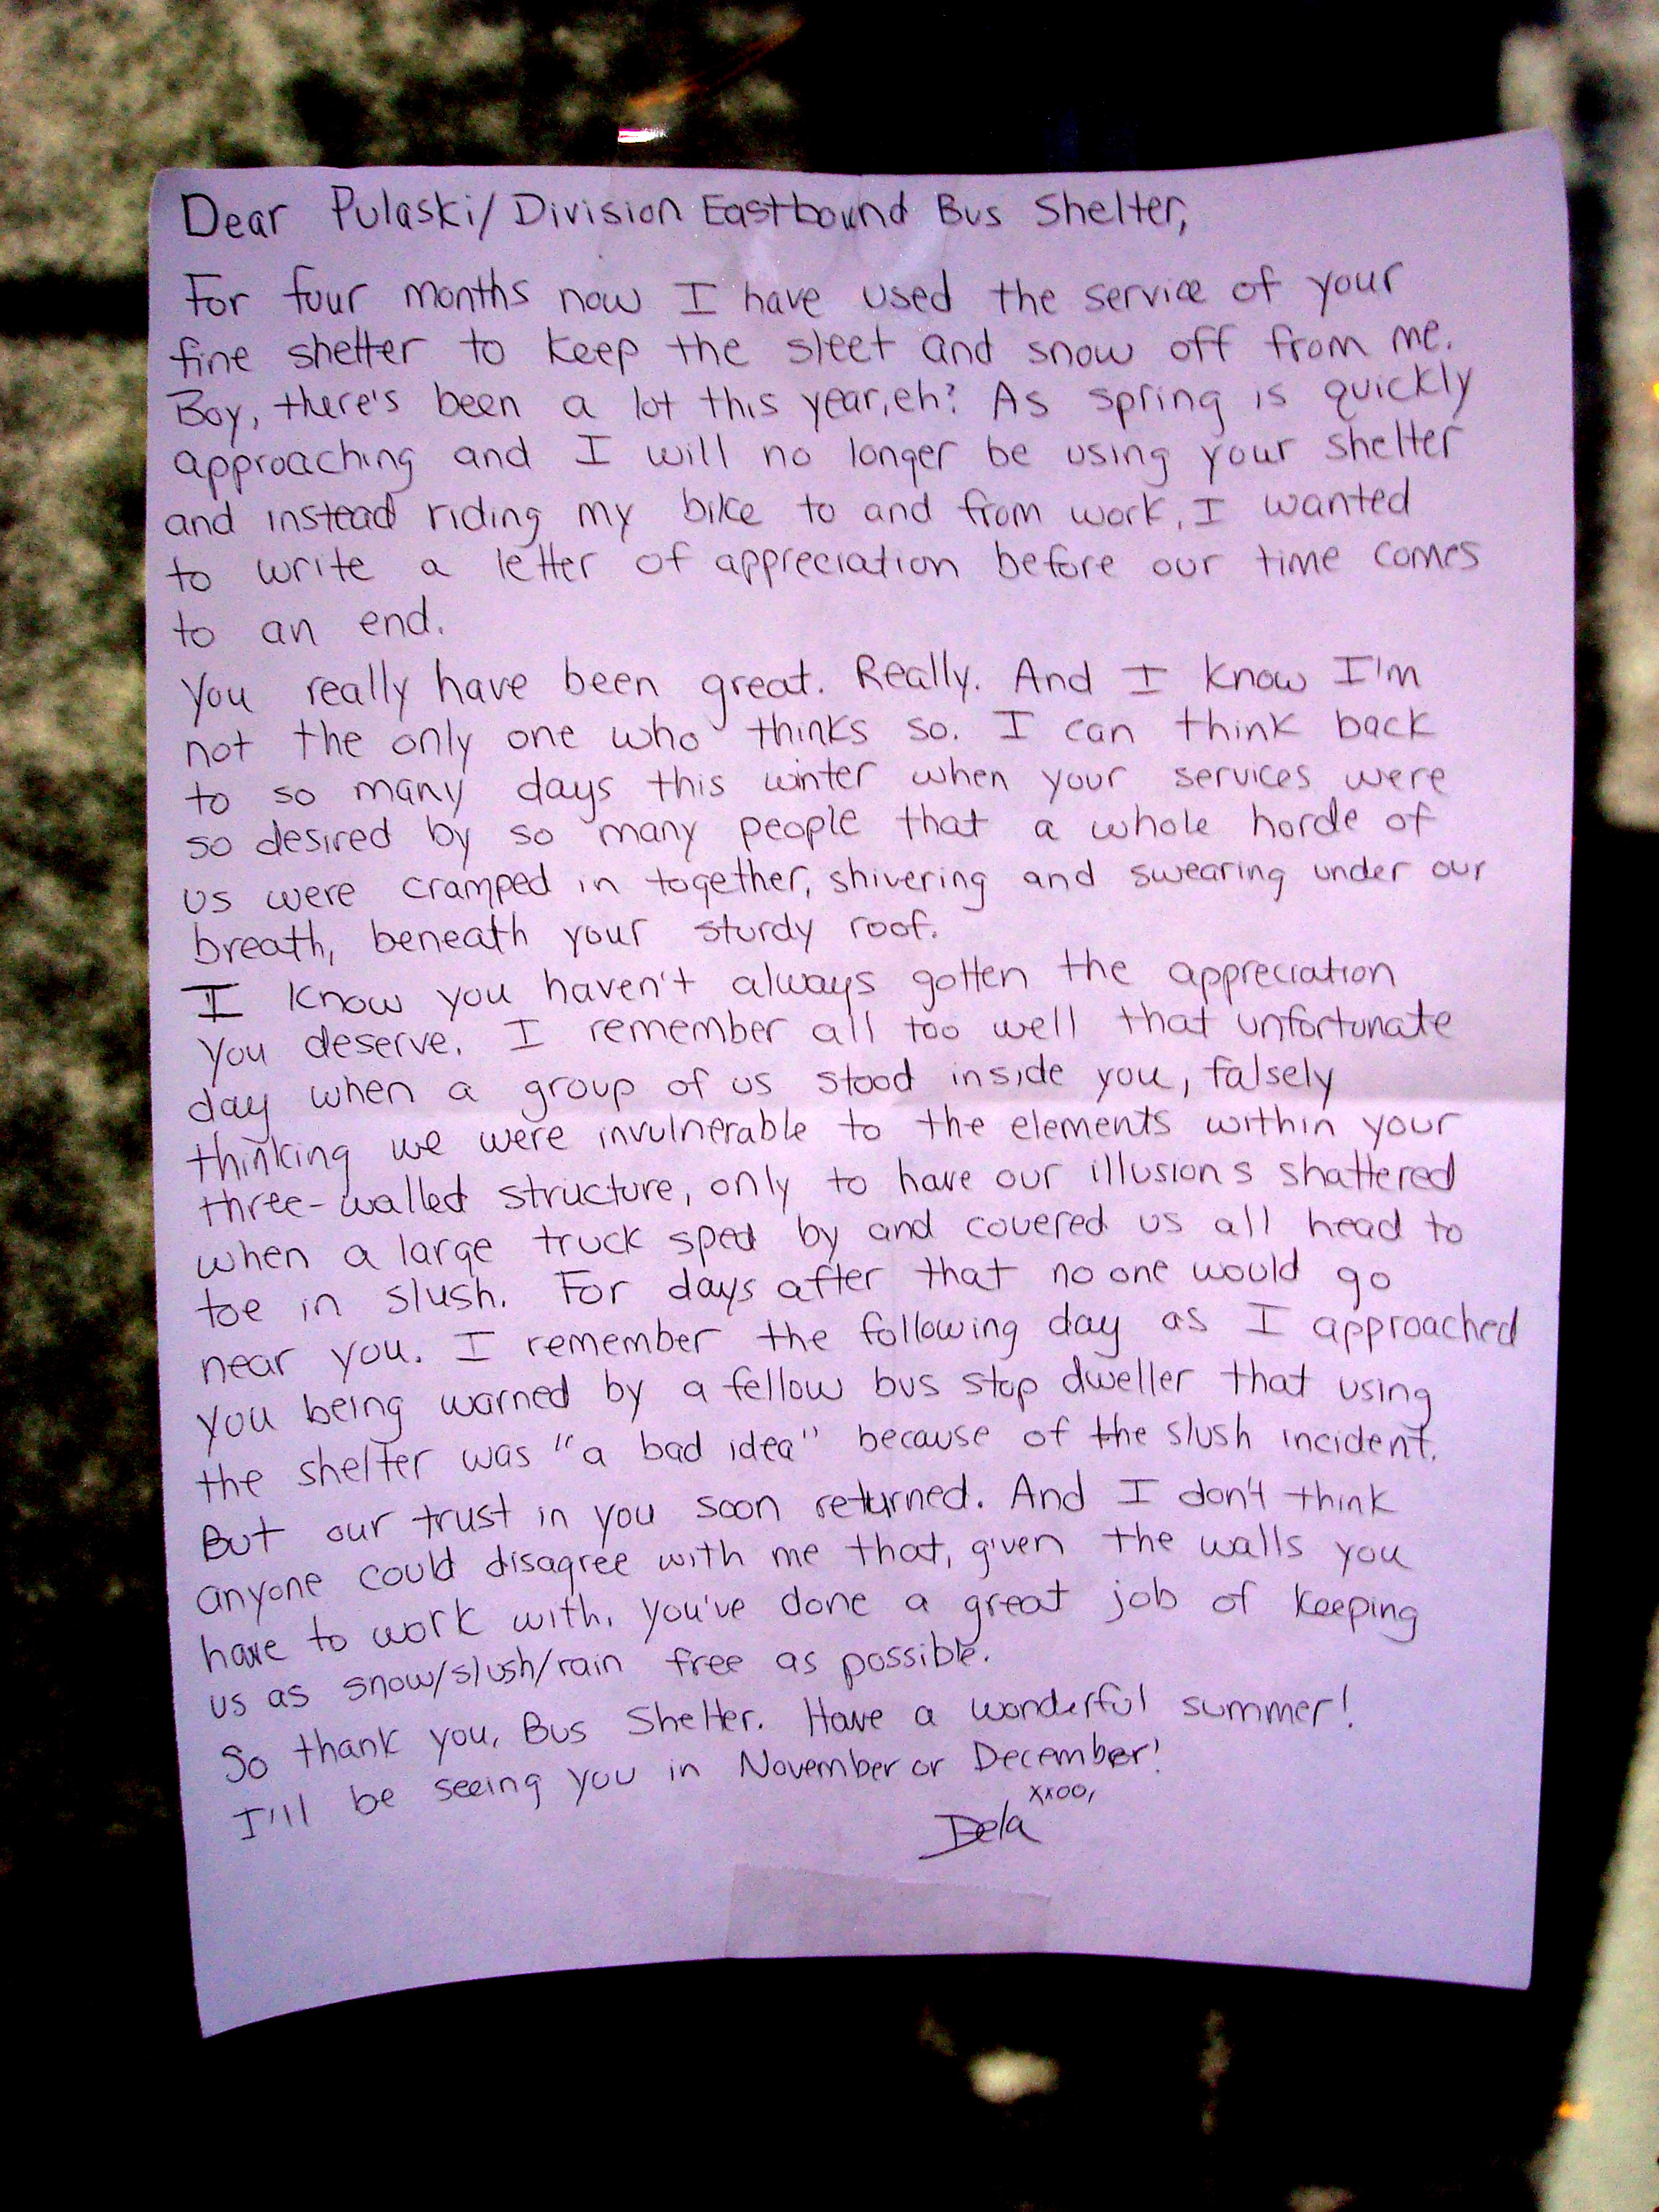 Dear Pulaski/Division Eastbound Bus Shelter,
For four months now I have used the service of your
fine shelter to keep the sleet and snow off from me.
Boy, there's been a lot this year, eh? As spring is quickly
approaching and I will no longer be using your shelter
and instead riding my bike to and from work, I wanted
to write a letter of appreciation before our time comes
to an end.
You really have been great. Really. And I know I'm
not the only one who thinks so. I can think back
to so many days this winter when your services were
so desired by so many people that a whole horde of
us were cramped in together, shivering and swearing under our
breath, beneath your sturdy roof.
I know you haven't always gotten the appreciation
you deserve. I remember all too well that unfortunate
day when a group of us stood inside you, falsely
thinking we were invulnerable to the elements within your
three-walled structure, only to have our illusions shattered
when a large truck sped by and covered us all head to
toe in slush. For days after that no one would go
near you. I remember the following day as I approached
you being warned by a fellow bus stop dweller that using
the shelter was "a bad idea" because of the slush incident.
But our trust in you soon returned. And I don't think
anyone could disagree with me that, given the walls you
have to work with, you've done a great job of keeping
us as snow/slush/rain free as possible.
So thank you, Bus Shelter. Have a wonderful summer!
I'll be seeing you in November or December!
xxoo,
Dela